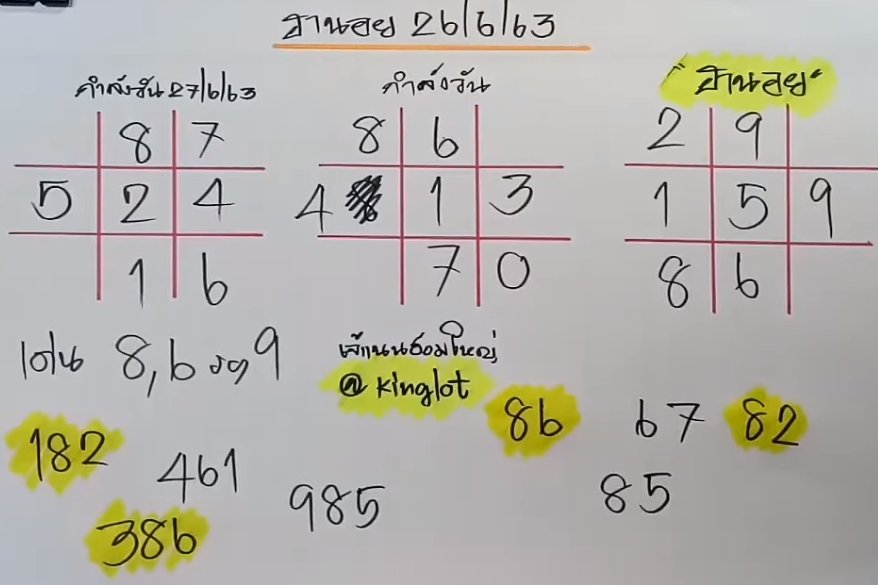 ฮานอย 26/6/63
กำลังวัน 27/6/63
8 7
5 2 4
1 6
กำลังวัน
8 6
4 1 3
7 0
"ฮานอย"
2 9
1 5 9
8 6
เด่น 8,6 รอง 9
@ Kinglot
86 67 82
182 461 985 85
386